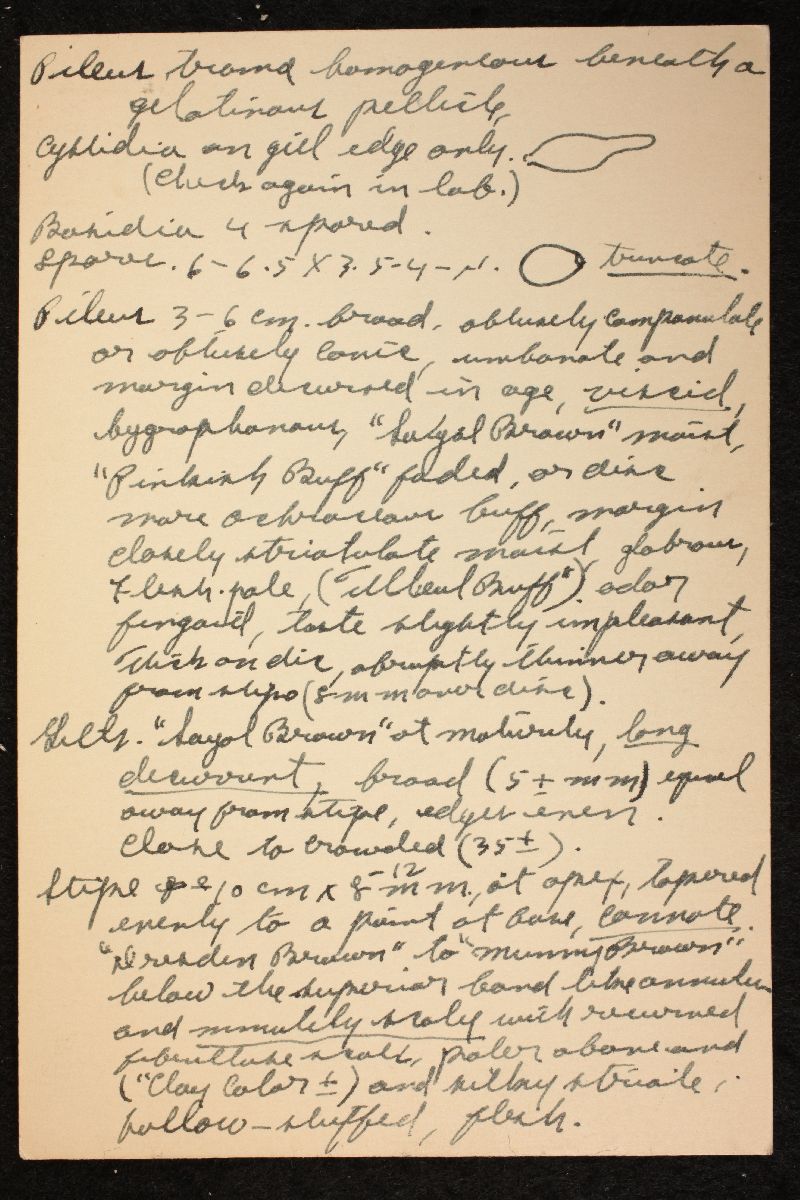 Pileus trama homogeneous beneath a
gelatinous pellicle,
Cystidia on gill edge only.
(Check again in lab.)
Basidia 4 spored.
Spores. 6-6.5 X 3.5-4-μ. truncate.
Pileus 3-6 cm. broad, obtusely campanulate
or obtusely conic, umbonate and
margin decurved in age, viscid,
hygrophanous, "Sayal Brown" moist,
"Pinkish Buff" faded, or disc
more ochraceous buff, margin
closely striatulate moist, glabrous,
Flesh pale, ("Tilleul Buff") odor
fungoid, taste slightly unpleasant,
thick on disc, abruptly thinner away
from stipe (8-mm over disc).
Gills. "Sayal Brown" at maturity, long
decurrent, broad (5 ± mm) equal
away from stipe, edges even.
Close to crowded (35±).
Stipe 10 cm x 8-12 mm., at apex, tapered
evenly to a point at base, connate.
"Dresden Brown" to "Mummy Brown"
below the superior band like annulus
and minutely scaly with recurved
fibrillose scales, paler above and
("Clay Color ±) and silky striate,
hollow-stuffed, flesh.